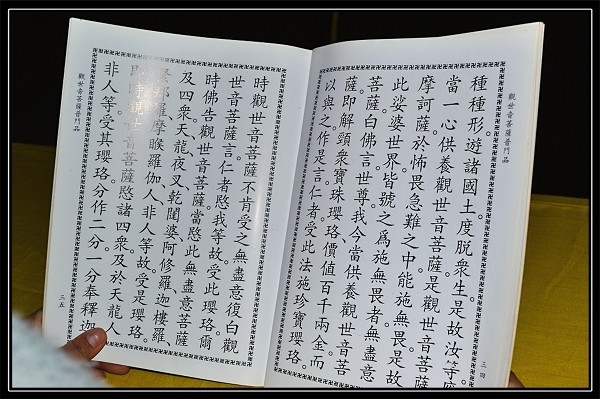 觀世音菩薩普門品
三四
種種形。遊諸國土。度脫眾生。是故汝等。
當一心供養觀世音菩薩。是觀世音菩薩
摩訶薩。於怖畏急難之中。能施無畏。是故
此娑婆世界。皆號之為施無畏者。無盡意
菩薩白佛言。世尊。我今當供養觀世音菩
薩。即解頸眾寶珠瓔珞。價值百千兩金。而
以與之。作是言。仁者。受此法施珍寶瓔珞。
時觀世音菩薩不肯受之。無盡意復白觀
世音菩薩言。仁者。愍我等故。受此瓔珞。爾
時佛告觀世音菩薩。當愍此無盡意菩薩
及四眾。天龍、夜叉、乾闥婆、阿修羅、迦樓羅、
緊那羅、摩睺羅伽、人非人等故。受是瓔珞。
即時觀世音菩薩愍諸四眾。及於天龍、人
非人等。受其瓔珞。分作二分。一分奉釋迦
觀世音菩薩普門品
三五